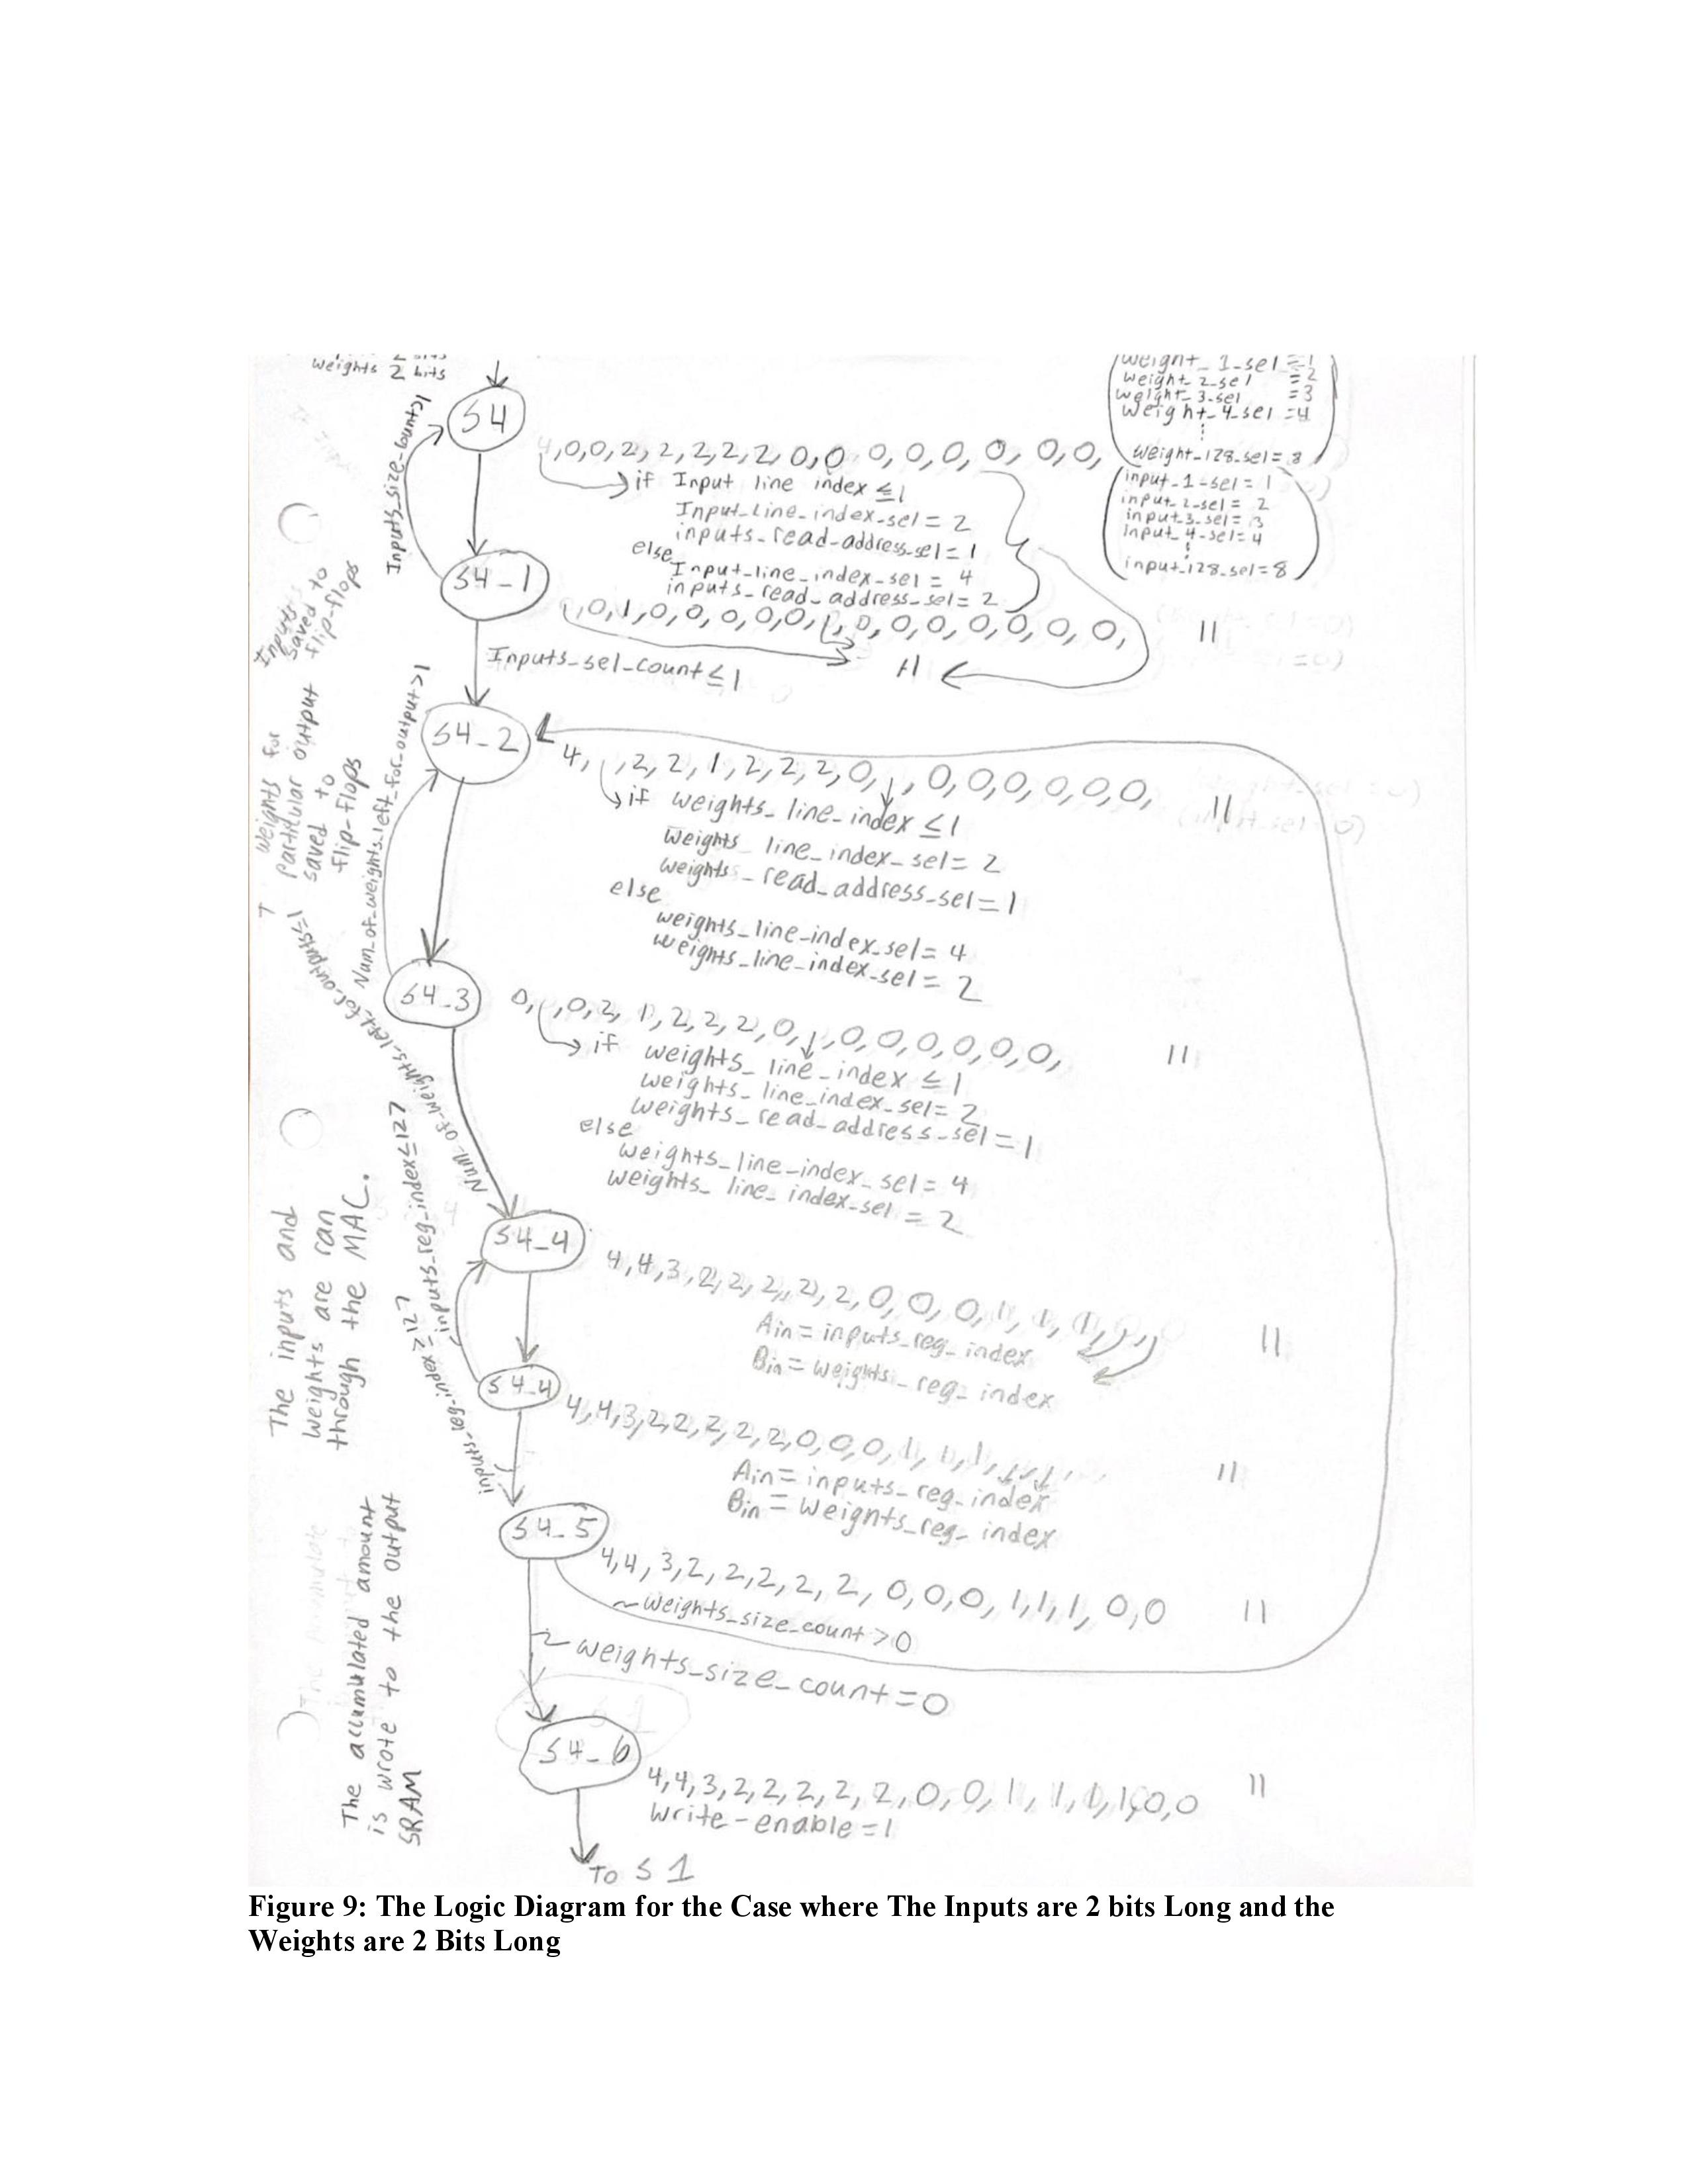 weights 2 bits
S4
Inputs_size_count>1
4,0,0,2,2,2,2,2,0,0,0,0,0,0,0,0,
weight_1_sel = 1
weight_2_sel = 2
weight_3_sel = 3
weight_4_sel = 4
⋮
weight_128_sel = 8
if Input line index ≤ 1
Input_Line_index_sel = 2
inputs_read_address_sel = 1
else
Input_line_index_sel = 4
inputs_read_address_sel = 2
input_1_sel = 1
input_2_sel = 2
input_3_sel = 3
input_4_sel = 4
⋮
input_128_sel = 8
S4_1
Inputs
saved to
flip-flops
,0,1,0,0,0,0,0,1,0,0,0,0,0,0,0, 11
Inputs_sel_count ≤ 1
S4_2
weights for
particular output
saved to
flip-flops
Num_of_weights_left_for_output>1
4, ,2,2,1,2,2,2,0, ,0,0,0,0,0,0, 11
if weights_line_index ≤ 1
weights_line_index_sel = 2
weights_read_address_sel = 1
else
weights_line_index_sel = 4
weights_line_index_sel = 2
S4_3
Num_of_weights_left_for_outputs=1
0, ,0,2,1,2,2,2,0, ,0,0,0,0,0,0, 11
if weights_line_index ≤ 1
weights_line_index_sel = 2
weights_read_address_sel = 1
else
weights_line_index_sel = 4
weights_line_index_sel = 2
S4_4
The inputs and
weights are ran
through the MAC.
inputs_reg_index≤127
4,4,3,2,2,2,2,2,0,0,0,1,1,1, 11
Ain = inputs_reg_index
Bin = weights_reg_index
S4_4
inputs_reg_index≥127
4,4,3,2,2,2,2,2,0,0,0,1,1,1, 11
Ain = inputs_reg_index
Bin = weights_reg_index
S4_5
4,4,3,2,2,2,2,2,0,0,0,1,1,1,0,0 11
weights_size_count > 0
weights_size_count = 0
The accumulated amount
is wrote to the output
SRAM
S4_6
4,4,3,2,2,2,2,2,0,0,1,1,1,1,0,0 11
write-enable = 1
To S1
Figure 9: The Logic Diagram for the Case where The Inputs are 2 bits Long and the
Weights are 2 Bits Long